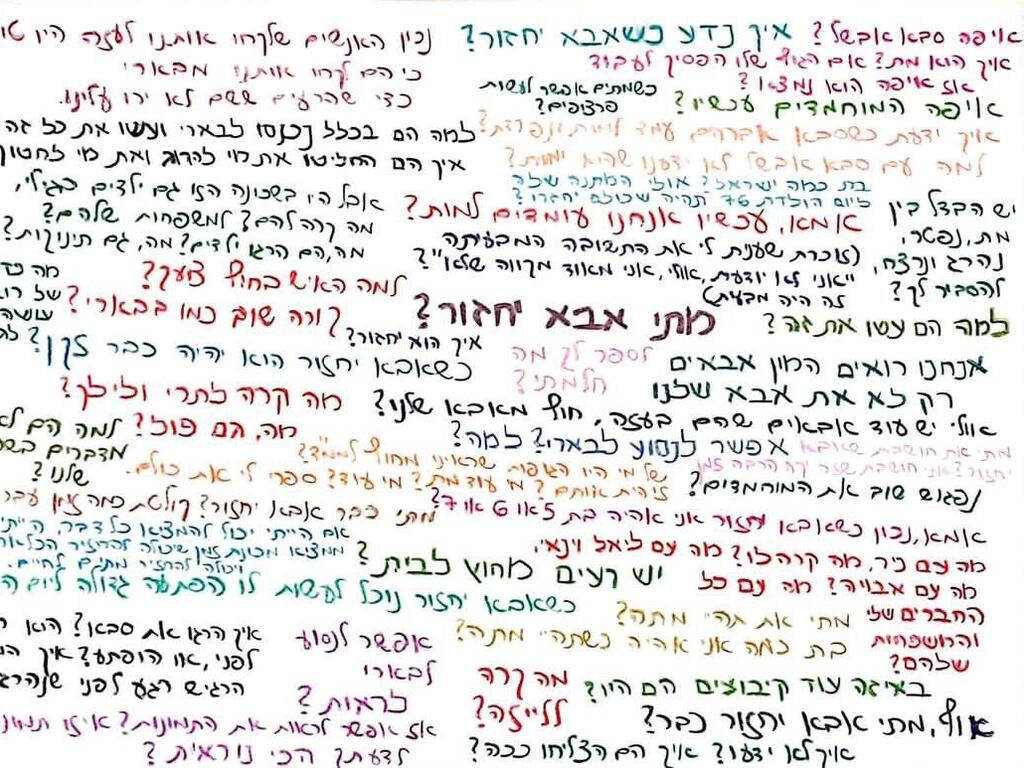 איפה סבא אבשל? איך נדע כשאבא יחזור?
נכון האנשים שלקחו אותנו לעזה היו
איך הוא מת? אם הגוף שלו הפסיק לעבוד
אז איפה הוא נמצא?
כי הם לקחו אותנו מבארי
כדי שהרעים ששם לא ירו עלינו.
כשמתים אפשר לעשות
פרצופים?
איפה המוחמדים עכשיו?
למה הם בכלל נכנסו לבארי ועשו את כל זה
איך ידעת כשסבא אברהם עמד למות ונפרדת?
איך הם החליטו את מי להרוג ואת מי לחטוף
למה עם סבא אבשל לא ידענו שהוא ימות?
בת כמה ישראל? אולי המתנה שלה
ליום הולדת 76 תהיה שכולם יחזרו?
אבל היו בשכונה הזו גם ילדים בגילי,
מה קרה להם? למשפחות שלהם?
מה, הם הרגו ילדים? מה, גם תינוקות?
אמא, עכשיו אנחנו עומדים למות?
יש הבדל בין
מת, נפטר,
נהרג ונרצח,
להסביר לך?
(זוכרת שענית לי את התשובה המבעיתה
"אני לא יודעת, אולי, אני מאוד מקווה שלא"?
לה היה מבעית)
למה האיש בחוץ צועק?
קורה שוב כמו בבארי?
מתי אבא יחזור?
למה הם עשו את זה?
איך הוא יחזור?
כשאבא יחזור הוא יהיה כבר זקן?
לספר לך מה
חלמתי?
אנחנו רואים המון אבאים
רק לא את אבא שלנו
מה קרה לתרי ולילך?
אולי יש עוד אבאים שהם בעזה, חוץ מאבא שלנו?
מה, הם פול? למה הם לא
מדברים
שלנו?
אפשר לנסוע לבארי? למה?
מתי את חושבת שאבא
יחזור? אני חושבת שזה יקח הרבה זמן
של מי היו הגופות שראינו מחוץ לממ"ד?
זיהית אותם? מי עוד מת? מי עוד? ספרי לי את כולם.
נפגוש שוב את המוחמדים?
אמא, נכון כשאבא יחזור אני אהיה בת 5 או 6 או 7?
מתי כבר אבא יחזור? קולטת כמה זמן עבר
אם הייתי יכול להמציא כל דבר, הייתי
ממציא מכונת זמן שיכולה להחזיר
ויכולה להחזיר מתים לחיים.
מה עם ניר, מה קרה לו? מה עם ליאל וינאי,
מה עם אביה? מה עם כל
החברים שלי
והמשפחות
שלהם?
יש רעים מחוץ לבית?
כשאבא יחזור נוכל לעשות לו הפתעה גדולה ליום
מתי את תהיי מתה?
בת כמה אני אהיה כשתהיי מתה?
איך הרגו את סבא? הוא
לפני, או הופתע? איך
הרגיש רגע לפני שנהרג
אפשר לנסוע
לבארי
לראות?
מה קרה
לליזה?
באיזה עוד קיבוצים הם היו?
אוף, מתי אבא יחזור כבר?
אז אפשר לראות את התמונות? איזו
לדעתך הכי נוראית?
איך לא ידעו? איך הם הצליחו ככה?